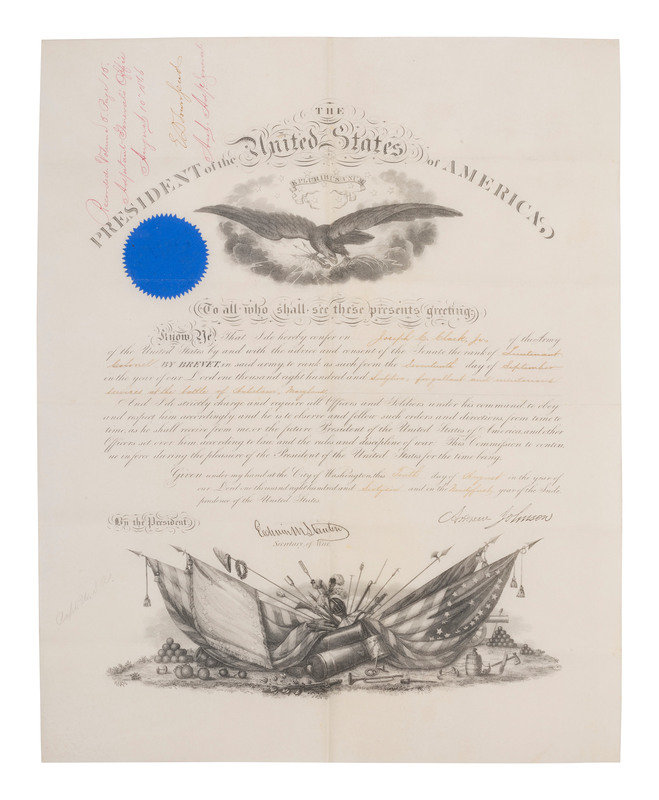 Recorded Volume 5 Page 18.
Adjutant General's Office
August 10 1866
E D Townsend
Asst. Adjt. General
THE
PRESIDENT of the United States of AMERICA,
E PLURIBUS UNUM
To all who shall see these presents greeting:
Know Ye, That I do hereby confer on Joseph C. Clark, jr. of the Army
of the United States by and with the advice and consent of the Senate the rank of Lieutenant
Colonel BY BREVET, in said army to rank as such from the Seventeenth day of September
in the year of our Lord one thousand eight hundred and sixty two for gallant and meritorious
services at the battle of Antietam, Maryland
And I do strictly charge and require all Officers and Soldiers under his command to obey
and respect him accordingly and he is to observe and follow such orders and directions, from time to
time, as he shall receive from me or the future President of the United States of America and other
Officers set over him according to law and the rules and discipline of war. This Commission to continue
in force during the pleasure of the President of the United States for the time being.
Given under my hand at the City of Washington, this Tenth day of August in the year of
our Lord one thousand eight hundred and sixty six and in the Ninety first year of the Inde-
pendence of the United States
By the President
Andrew Johnson
Edwin M Stanton
Secretary of War.